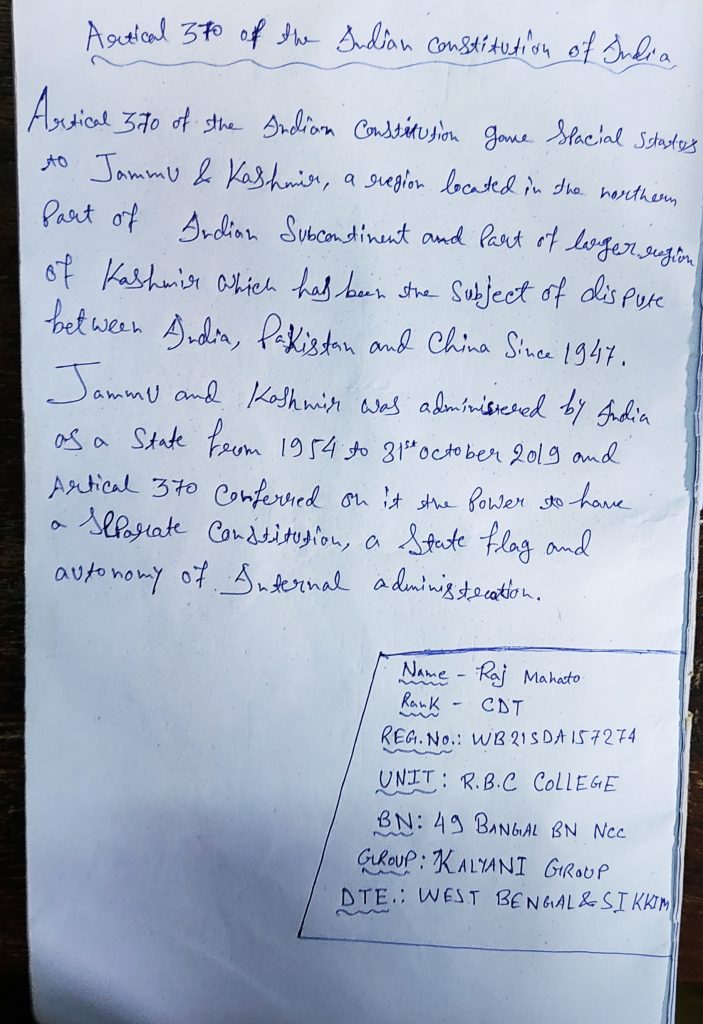 Artical 370 of the Indian constitution of India
Artical 370 of the Indian Constitution gave Spacial Status
to Jammu & Kashmir, a region located in the northern
Part of Indian Subcontinent and Part of larger region
of Kashmir which has been the Subject of dispute
between India, Pakistan and China Since 1947.
Jammu and Kashmir was administered by India
as a State from 1954 to 31st october 2019 and
Artical 370 Conferred on it the Power to have
a Separate Constitution, a State flag and
autonomy of Internal administration.
Name - Raj Mahato
Rank - CDT
REG.No.: WB21SDA157274
UNIT: R.B.C COLLEGE
BN: 49 BANGAL BN NCC
GROUP: KALYANI GROUP
DTE.: WEST BENGAL & SIKKIM